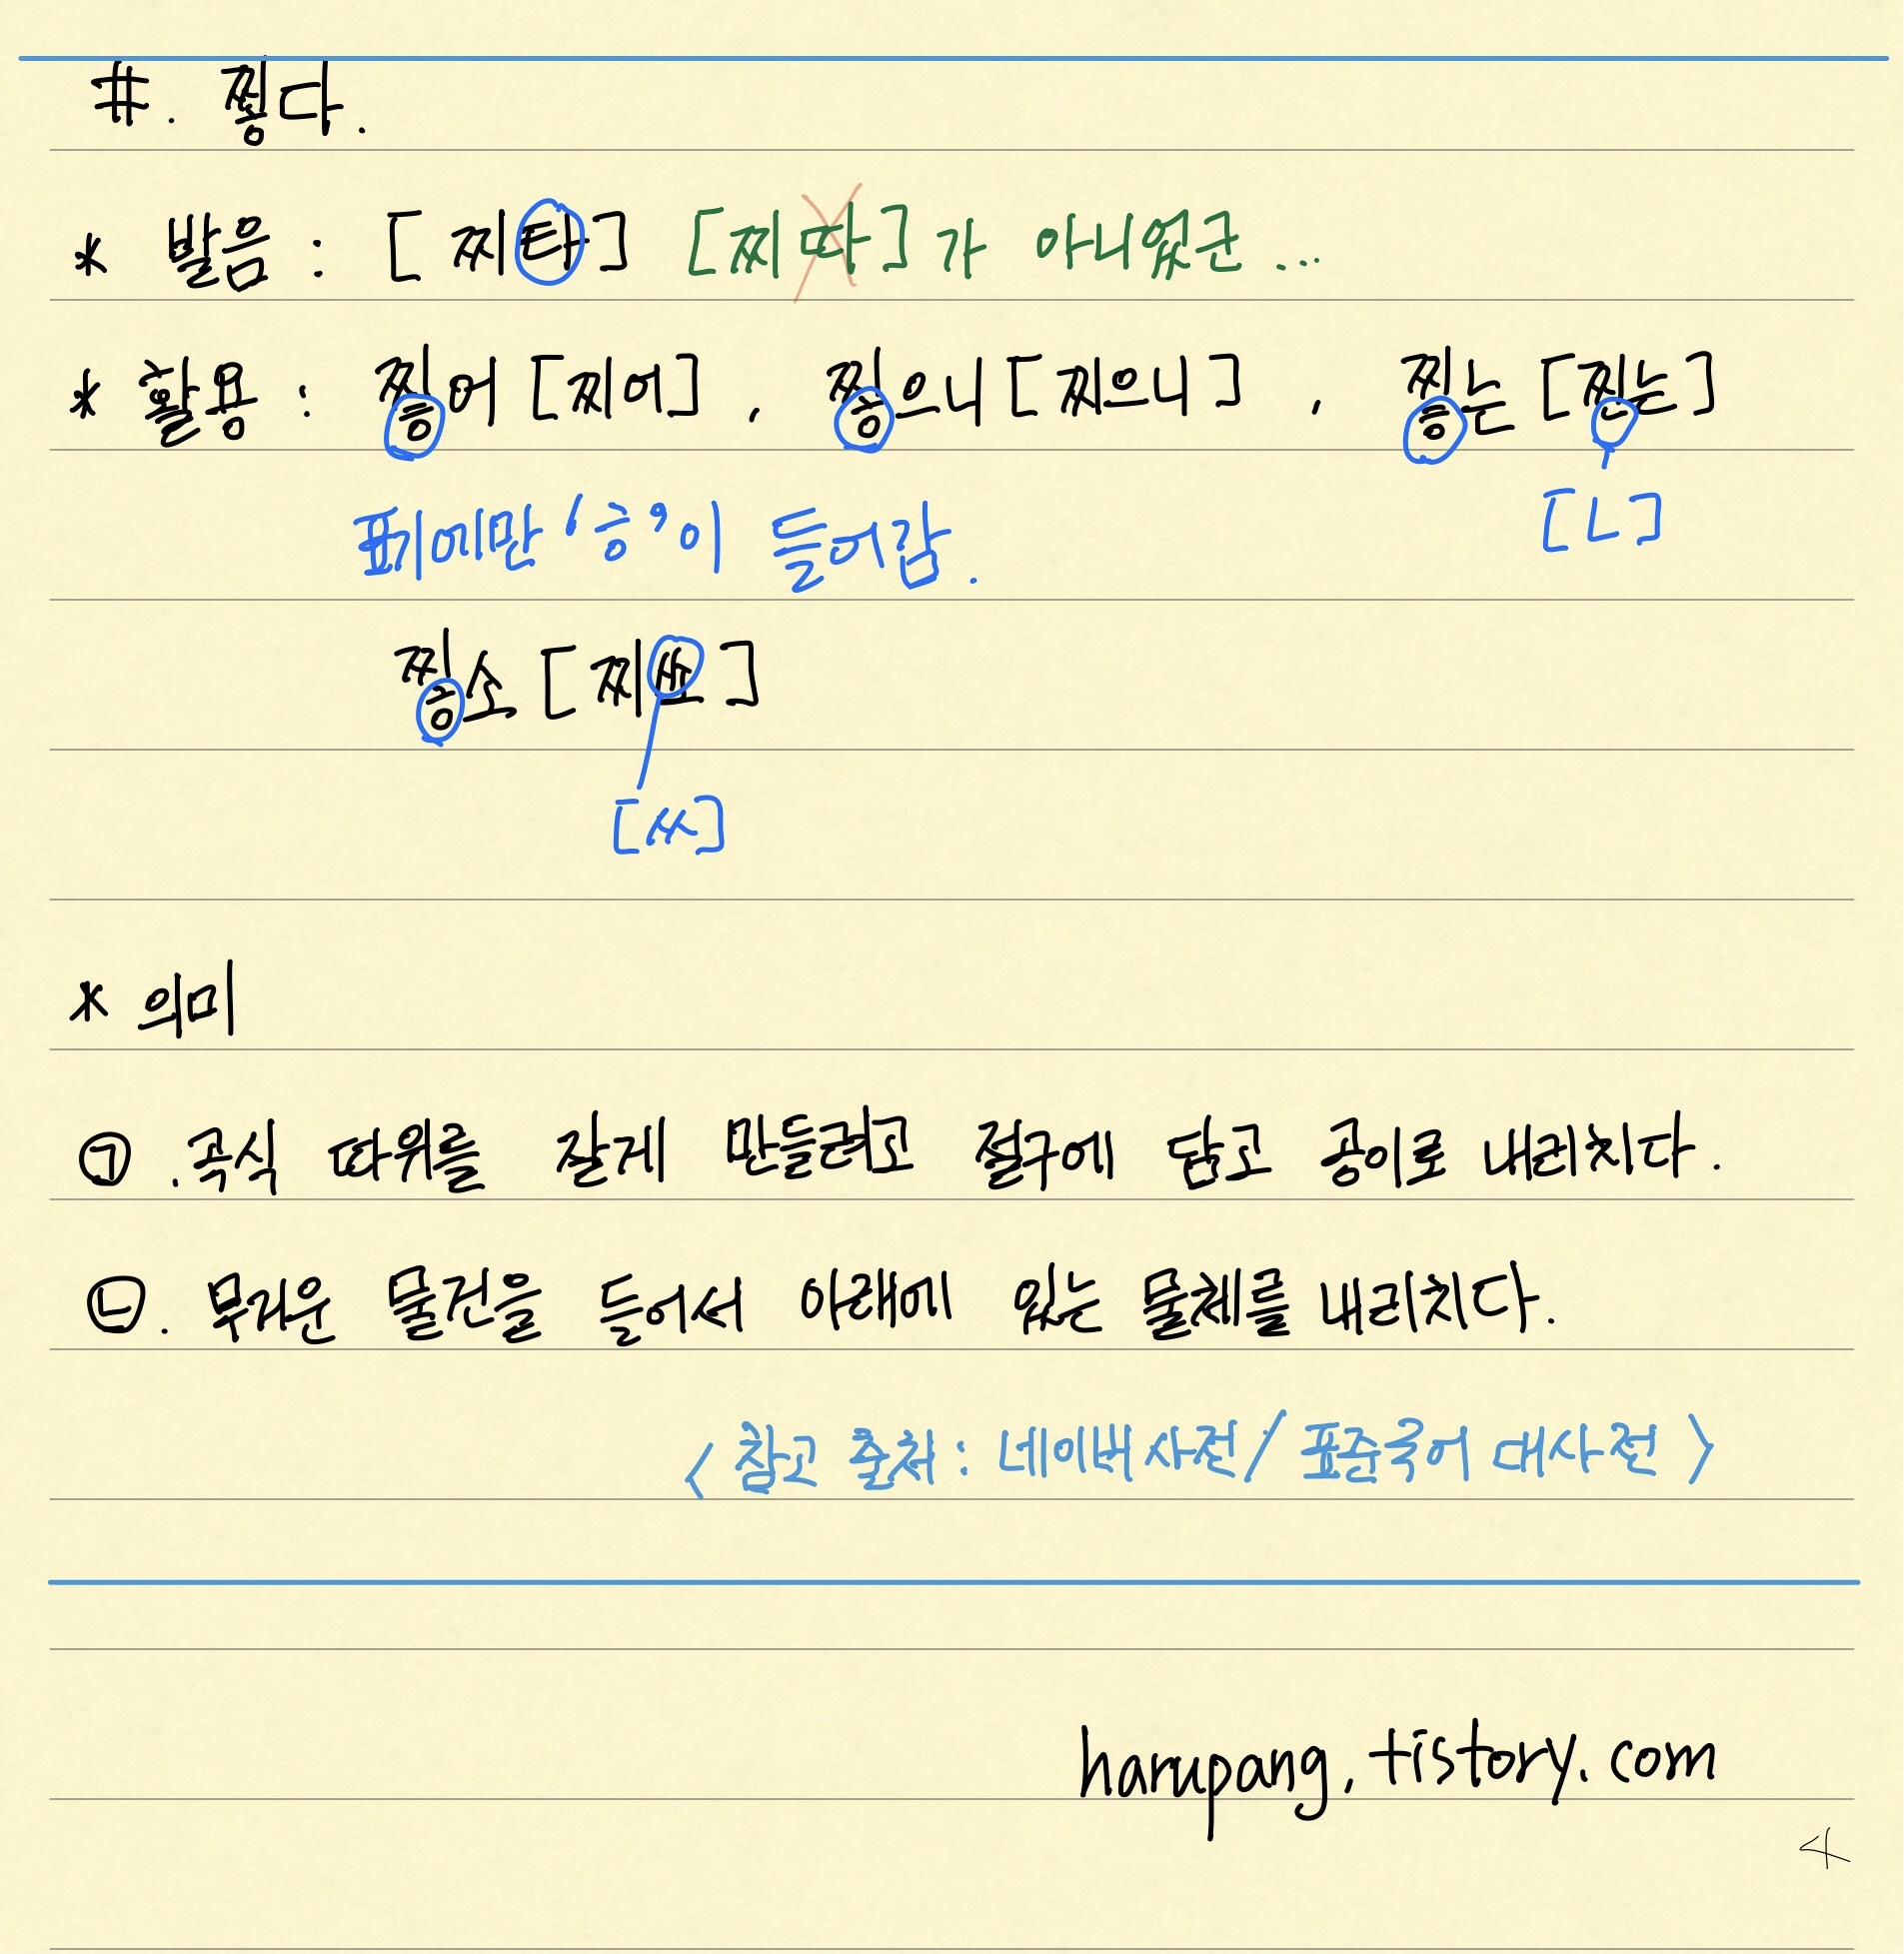 #. 찧다.
* 발음 : [찌타] [찌따]가 아니었군...
* 활용 : 찧어[찌어], 찧으니[찌으니], 찧는[찐는]
표기에만 'ㅎ'이 들어감. [ㄴ]
찧소[찌쏘]
[ㅆ]
* 의미
㉠. 곡식 따위를 잘게 만들려고 절구에 담고 공이로 내리치다.
㉡. 무거운 물건을 들어서 아래에 있는 물체를 내리치다.
<참고 출처 : 네이버사전/표준국어 대사전>
harupang.tistory.com